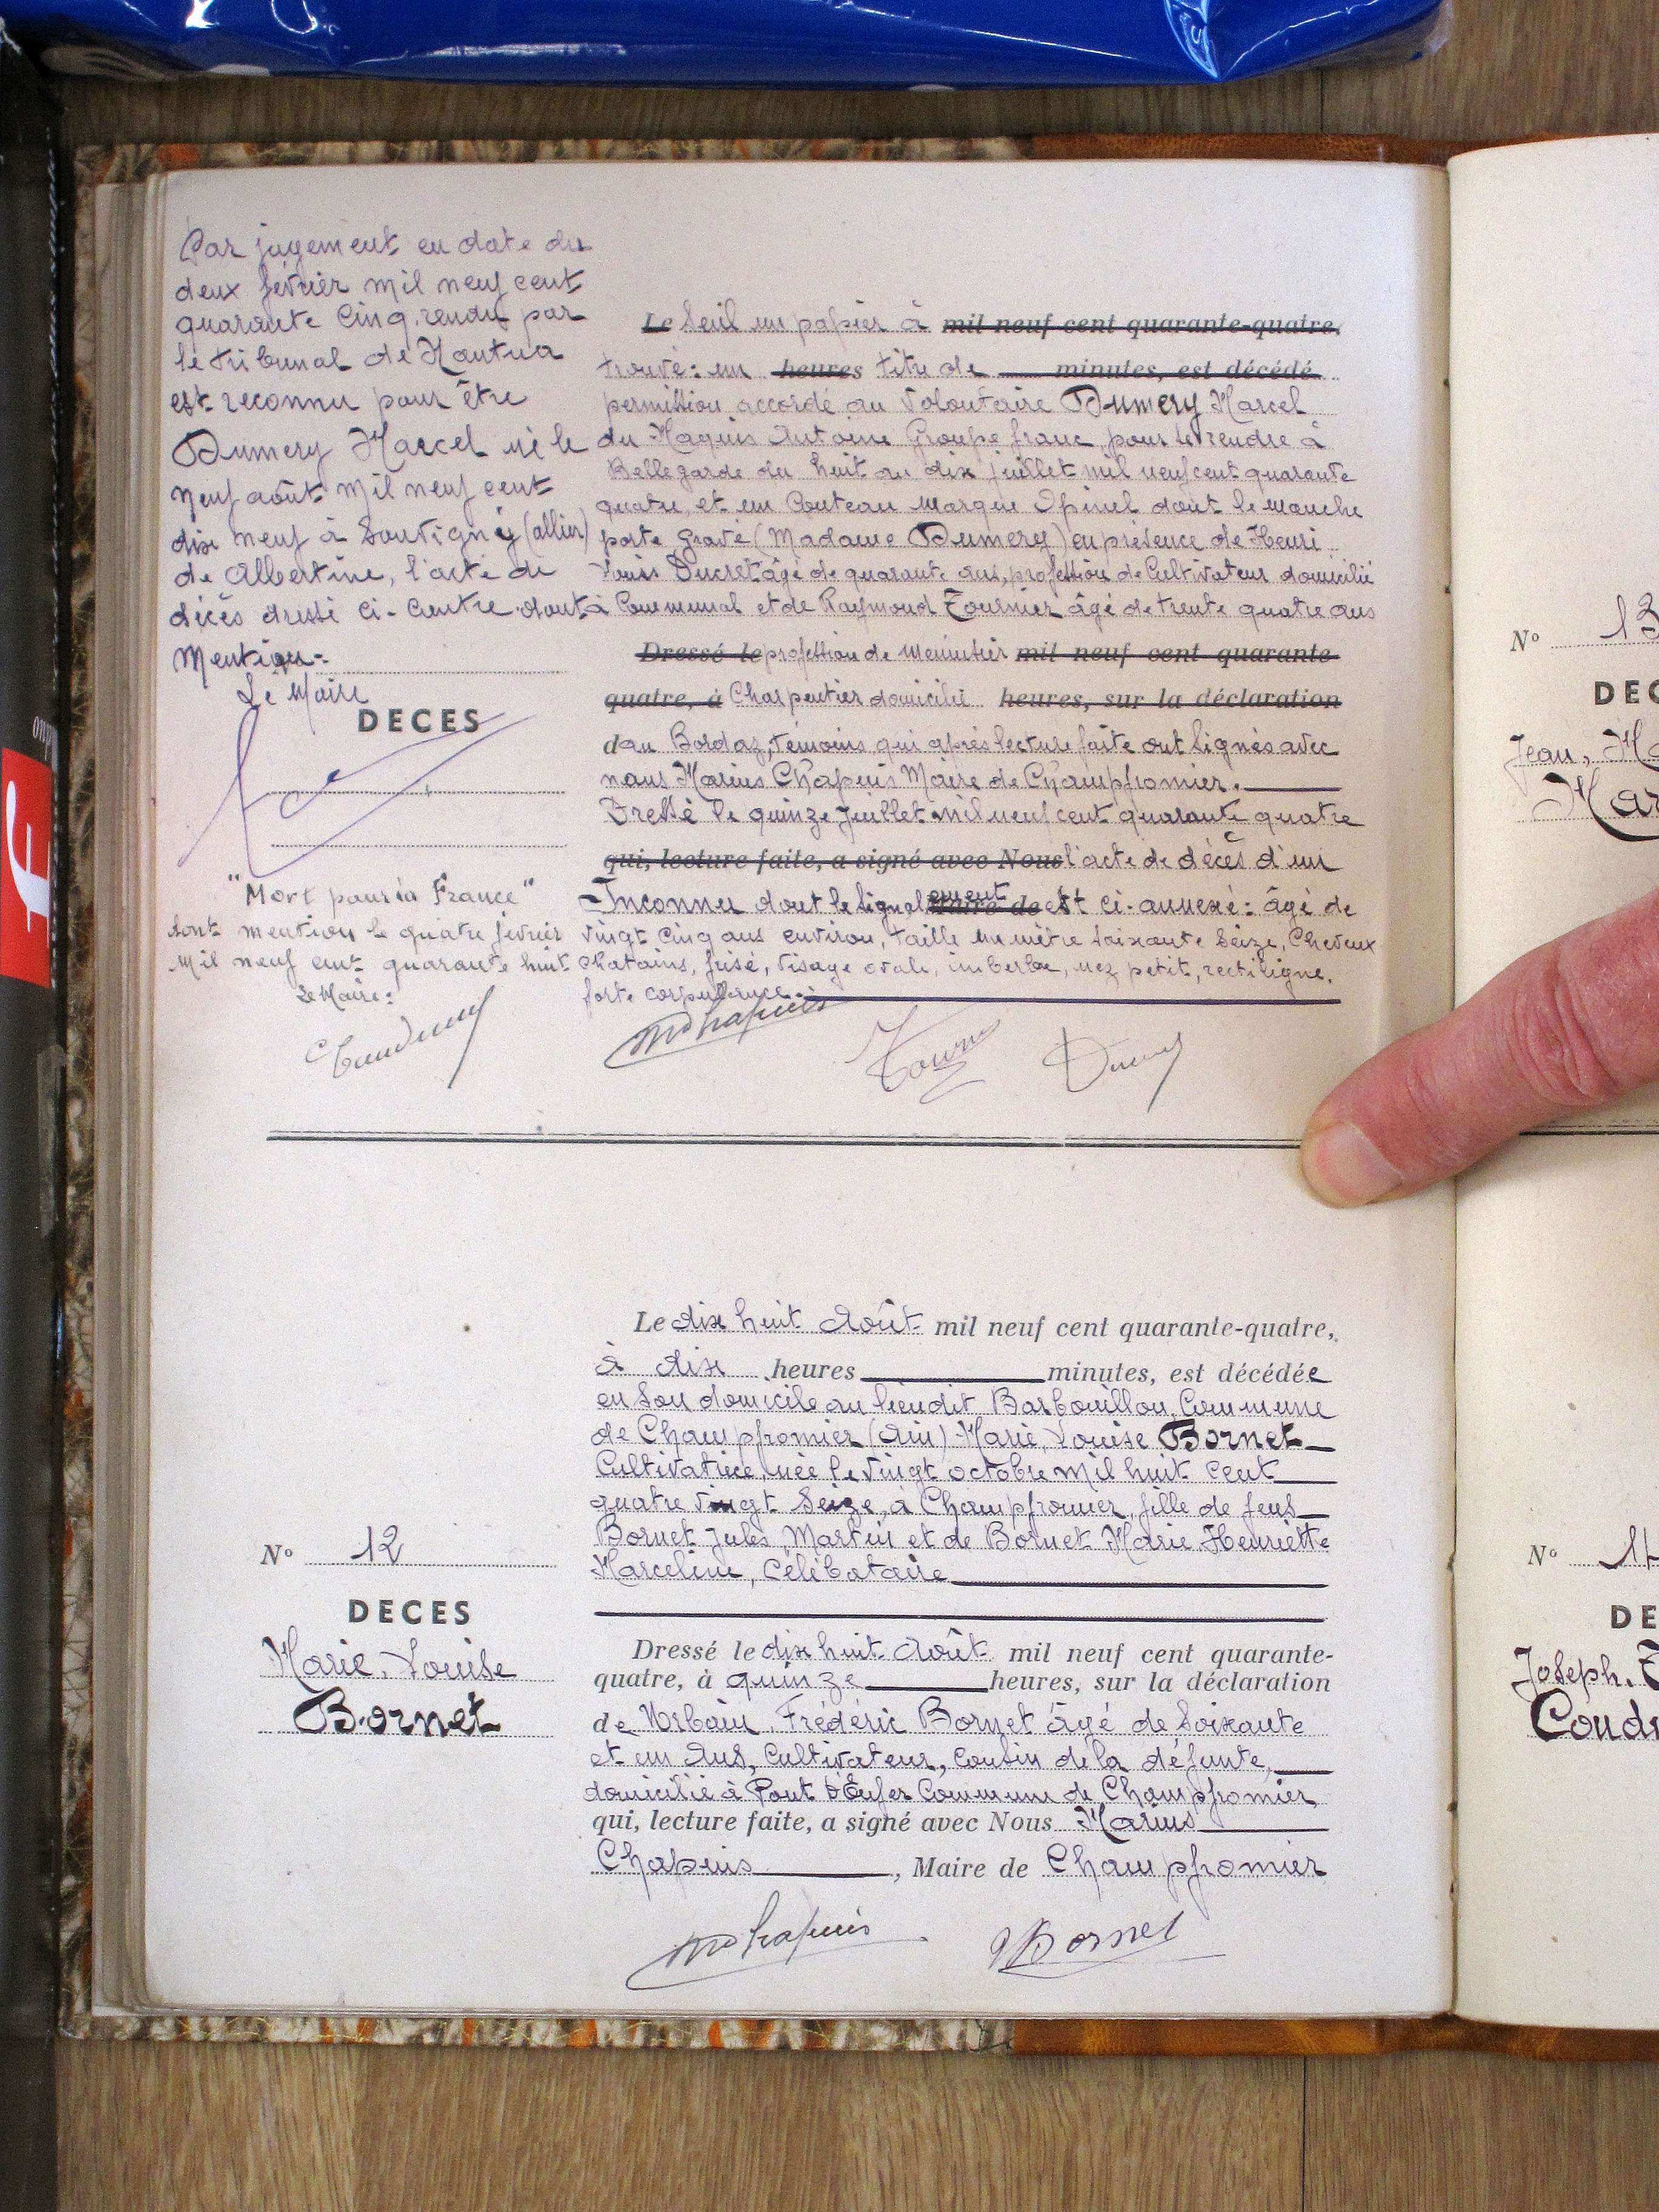 Par jugement en date du
deux février mil neuf cent
quarante cinq, rendu par
le tribunal de Nantua
est reconnu pour être
Dumery Marcel né le
neuf août mil neuf cent
dix neuf à Souvigny (allier)
de Albertine, l'acte de
décès dressé ci-contre dont
Mention:
Le Maire
DECES
"Mort pour la France"
dont mention le quatre février
mil neuf cent quarante huit
Le Maire:
Le seul un papier à mil neuf cent quarante-quatre,
trouvé: un heures titre de minutes, est décédé
permission accordé au Volontaire Dumery Marcel
du Maquis Antoine Groupe franc, pour se rendre à
Bellegarde du huit au dix juillet mil neuf cent quarante
quatre, et un Couteau marque Opinel dont le manche
porte gravé (Madame Dumery) en présence de Henri
Louis Ducret âgé de quarante ans, profession de Cultivateur domicilié
à Communal et de Raymond Tournier âgé de trente quatre ans
Dressé le profession de menuisier mil neuf cent quarante
quatre, à Charpentier domicilié heures, sur la déclaration
d au Bordaz, témoins qui après lecture faite ont signés avec
nous Marius Chapuis Maire de Champfromier.
Dressé le quinze Juillet mil neuf cent quarante quatre
qui, lecture faite, a signé avec Nous l'acte de décès d'un
Inconnu dont le signalement Maire de est ci-annexé: âgé de
vingt cinq ans environ, taille un mètre soixante seize, Cheveux
chatains, frisé, visage ovale, imberbe, nez petit, rectiligne.
forte corpulence.
MChapuis
Ducret
Le dix huit Août mil neuf cent quarante-quatre,
à dix heures minutes, est décédée
en son domicile au lieudit Barbouillon, Commune
de Champfromier (Ain) Marie, Louise Bornet
Cultivatrice, née le vingt octobre mil huit cent
quatre vingt seize, à Champfromier, fille de feus
Bornet Jules, Martin et de Bornet Marie Henriette
Marceline, Célibataire
N° 12
DECES
Marie, Louise
Bornet
Dressé le dix huit Août mil neuf cent quarante-
quatre, à quinze heures, sur la déclaration
de Urbain, Frédéric Bornet âgé de soixante
et un Ans, Cultivateur, Cousin de la défunte,
domicilié à Pont d'Enfer Commune de Champfromier
qui, lecture faite, a signé avec Nous Marius
Chapuis, Maire de Champfromier
MChapuis
Bornet
N° 13
DEC
Jean, Ma
Mar
N°
DE
Joseph,
Coudr